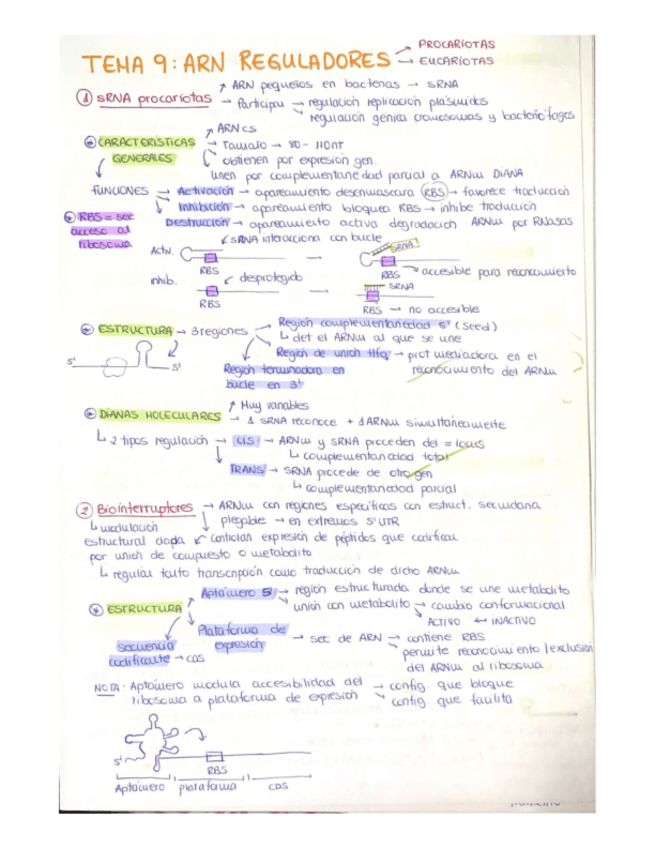 PROCARIOTAS
TEMA 9: ARN REGULADORES → EUCARIOTAS
↗ ARN pequeños en bacterias → sRNA
① sRNA procariotas → Participan → regulación replicación plásmidos
regulación génica cromosomas y bacteriófagos
↗ ARNcs
CARACTERÍSTICAS → Tamaño → 80 - 110nt
GENERALES obtienen por expresión gen.
unen por complementariedad parcial a ARNm DIANA
FUNCIONES → Activación → apareamiento desenmascara (RBS) → favorece traducción
RBS = sec Inhibición → apareamiento bloquea RBS → inhibe traducción
acceso al Destrucción → apareamiento activa degradación ARNm por RNasas
ribosoma sRNA interacciona con bucle
Activ. → sRNA
RBS RBS → accesible para reconocimiento
inhib. desprotegido → sRNA
RBS RBS → no accesible
ESTRUCTURA → 3 regiones → Región complementariedad 5' (seed)
↳ det el ARNm al que se une
Región de unión Hfq → prot mediadora en el
5' 3' Región terminadora en reconocimiento del ARNm
bucle en 3'
↗ Muy variables
DIANAS MOLECULARES → 1 sRNA reconoce + 1 ARNm simultáneamente
↳ 2 tipos regulación → CIS → ARNm y sRNA proceden del = locus
↳ complementariedad total
TRANS → sRNA procede de otro gen
↳ complementariedad parcial
② Biointerruptores → ARNm con regiones específicas con estruct. secundaria
↳ modulación plegable → en extremos 5' UTR
estructural dada controlan expresión de péptidos que codifican
por unión de compuesto o metabolito
↳ regulan tanto transcripción como traducción de dicho ARNm
Aptámero 5' → región estructurada donde se une metabolito
ESTRUCTURA unión con metabolito → cambio conformacional
ACTIVO ↔ INACTIVO
Plataforma de
secuencia expresión → sec de ARN → contiene RBS
codificante → CDS permite reconocimiento/exclusión
del ARNm al ribosoma
NOTA: Aptámero modula accesibilidad del → config. que bloque
ribosoma a plataforma de expresión → config que facilita
5'
RBS
Aptámero plataforma CDS